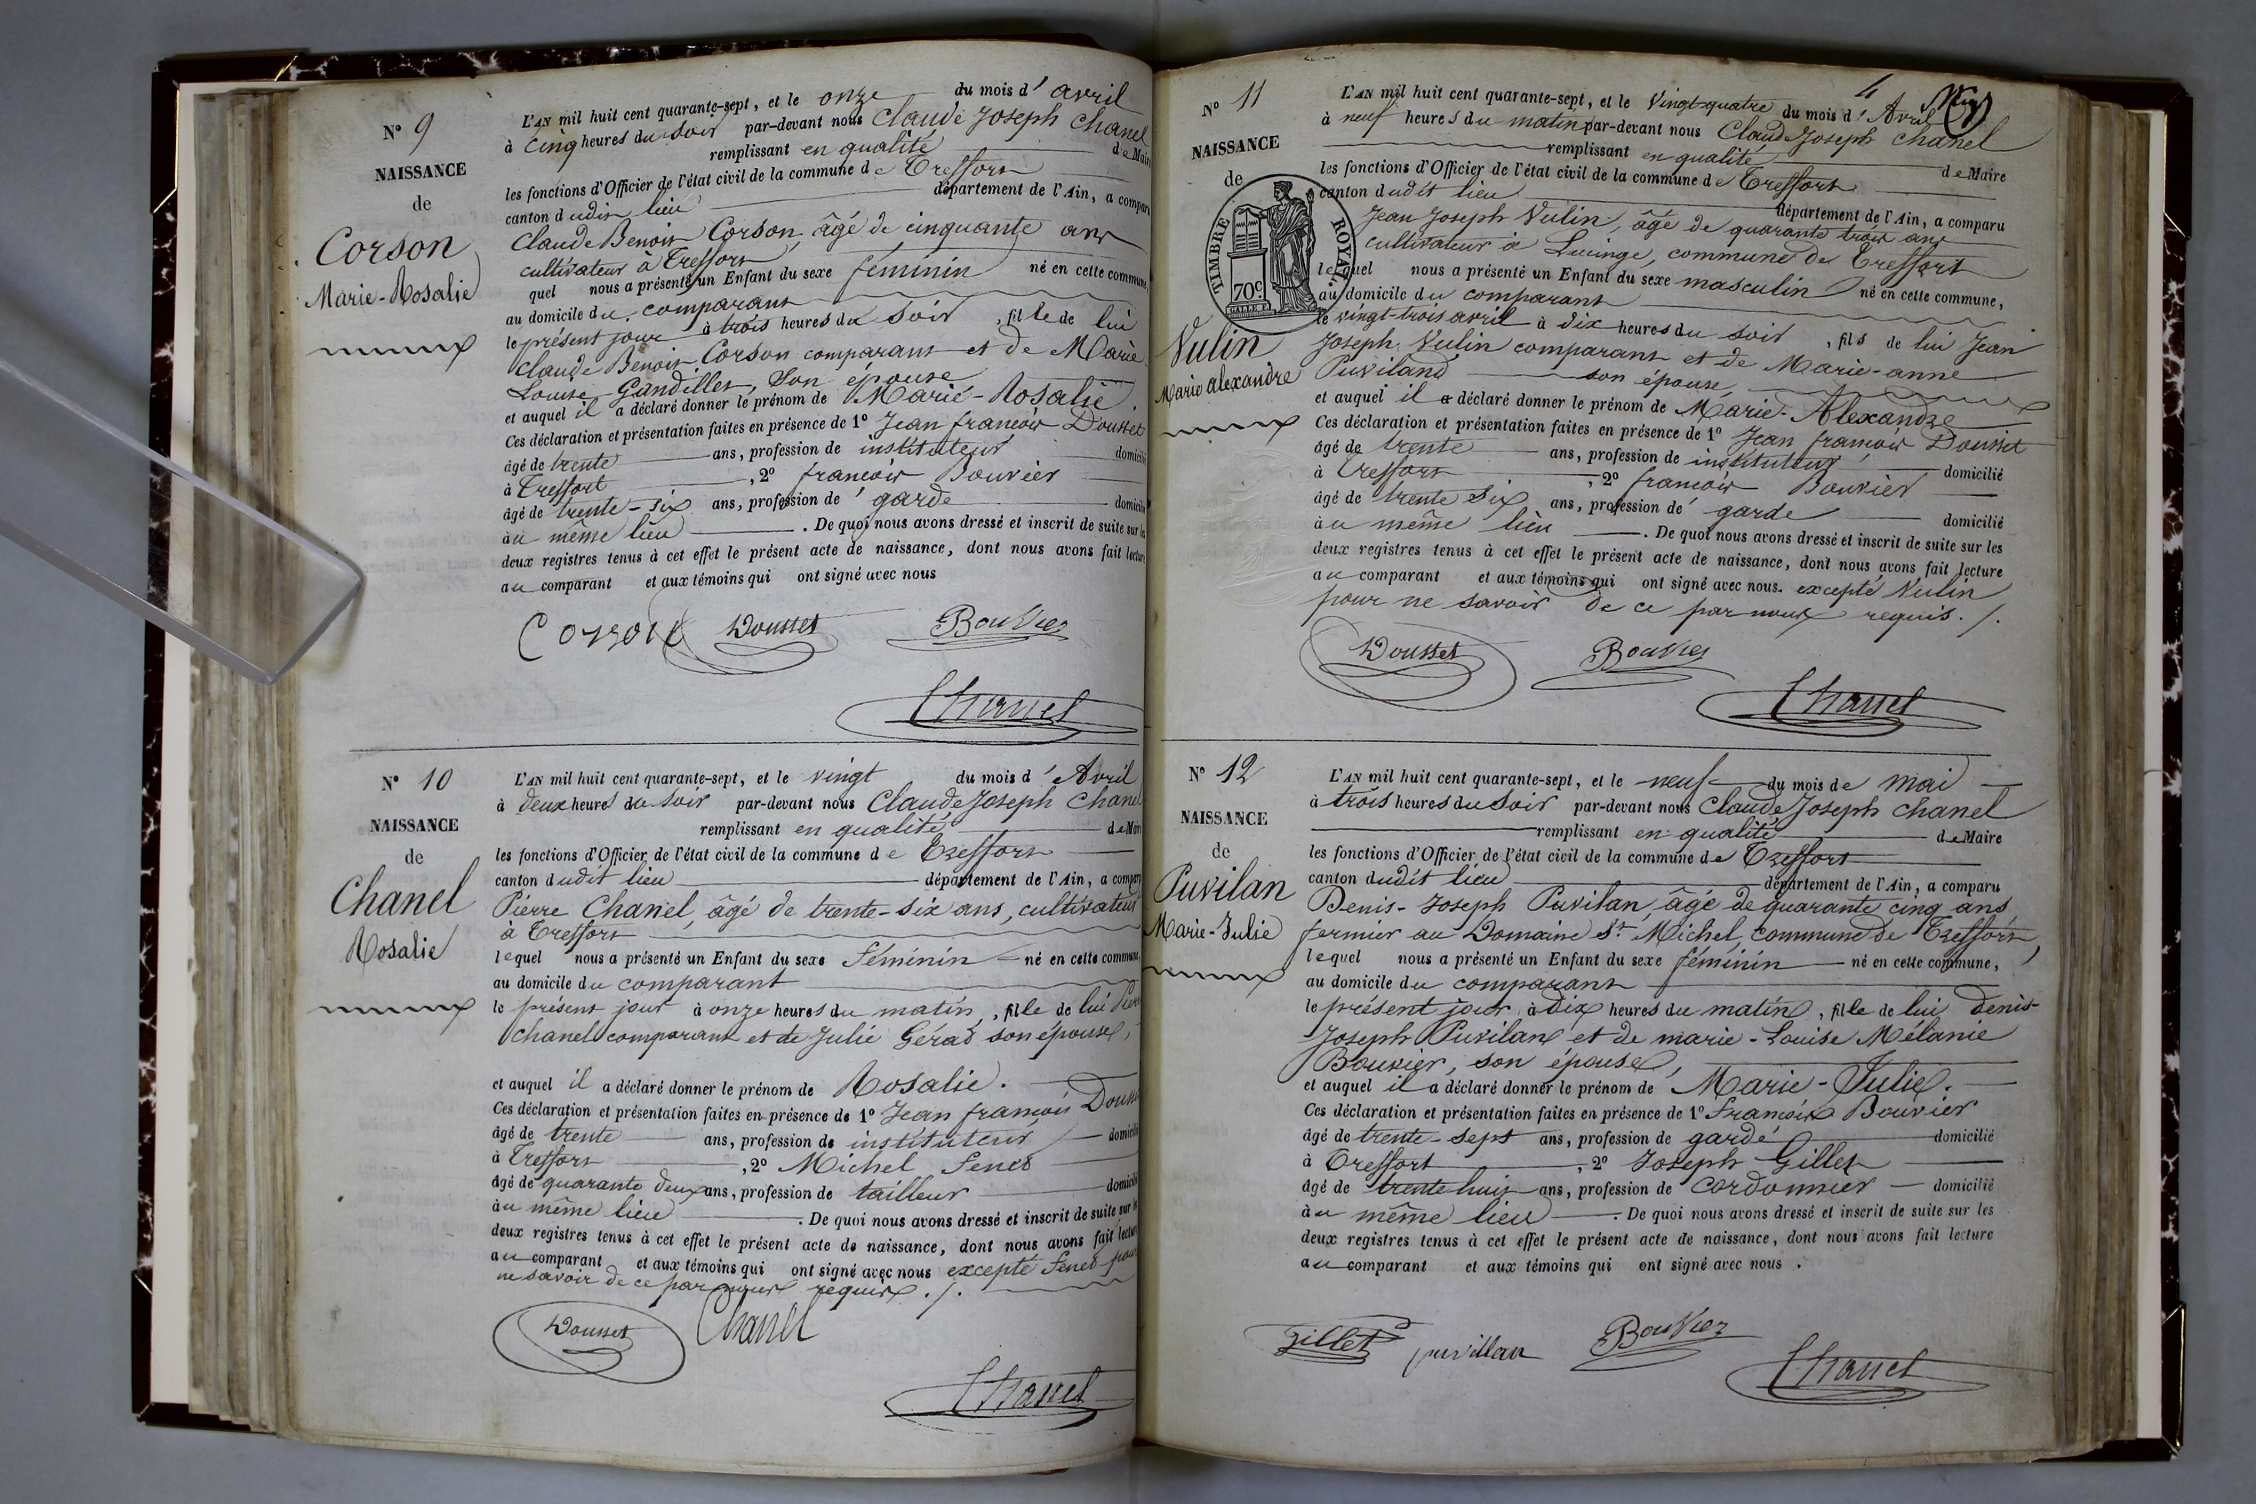 N° 9
NAISSANCE
de
Corson
Marie-Rosalie
L'AN mil huit cent quarante-sept, et le onze du mois d' avril
à cinq heures du soir par-devant nous Claude Joseph Chanel
remplissant en qualité de Maire
les fonctions d'Officier de l'état civil de la commune de Treffort
canton dudit lieu département de l'Ain, a comparu
Claude Benoit Corson âgé de cinquante ans
cultivateur à Treffort
quel nous a présenté un Enfant du sexe féminin né en cette commune,
au domicile du comparant
le présent jour à trois heures du soir, fille de lui
Claude Benoit Corson comparant et de Marie
Louise Gandillet, son épouse
et auquel il a déclaré donner le prénom de Marie-Rosalie.
Ces déclaration et présentation faites en présence de 1° Jean françois Dousset
âgé de trente ans, profession de instituteur domicilié
à Treffort, 2° françois Bouvier
âgé de trente-six ans, profession de garde domicilié
au même lieu. De quoi nous avons dressé et inscrit de suite sur les
deux registres tenus à cet effet le présent acte de naissance, dont nous avons fait lecture
au comparant et aux témoins qui ont signé avec nous
Corson Dousset Bouvier
Chanel
N° 10
NAISSANCE
de
Chanel
Rosalie
L'AN mil huit cent quarante-sept, et le vingt du mois d' Avril
à deux heures du soir par-devant nous Claude Joseph Chanel
remplissant en qualité de Maire
les fonctions d'Officier de l'état civil de la commune de Treffort
canton dudit lieu département de l'Ain, a comparu
Pierre Chanel, âgé de trente-six ans, cultivateur
à Treffort
lequel nous a présenté un Enfant du sexe féminin né en cette commune,
au domicile du comparant
le présent jour à onze heures du matin, fille de lui Pierre
Chanel comparant et de Julie Gérad son épouse,
et auquel il a déclaré donner le prénom de Rosalie.
Ces déclaration et présentation faites en présence de 1° Jean françois Dousset
âgé de trente ans, profession de instituteur domicilié
à Treffort, 2° Michel Fened
âgé de quarante deux ans, profession de tailleur domicilié
au même lieu. De quoi nous avons dressé et inscrit de suite sur les
deux registres tenus à cet effet le présent acte de naissance, dont nous avons fait lecture
au comparant et aux témoins qui ont signé avec nous excepté Fened pour
ne savoir de ce par nous requis ./.
Dousset Chanel
Chanel
4
N° 11
NAISSANCE
de
TIMBRE ROYAL.
70c.
Vulin
Marie alexandre
L'AN mil huit cent quarante-sept, et le Vingt-quatre du mois d' Avril
à neuf heures du matin par-devant nous Claude Joseph Chanel
remplissant en qualité de Maire
les fonctions d'Officier de l'état civil de la commune de Treffort
canton dudit lieu département de l'Ain, a comparu
Jean Joseph Vulin, âgé de quarante trois ans
cultivateur à Lucinge, commune de Treffort
lequel nous a présenté un Enfant du sexe masculin né en cette commune,
au domicile du comparant
le vingt-trois avril à dix heures du soir, fils de lui Jean
Joseph Vulin comparant et de Marie-anne
Puviland son épouse,
et auquel il a déclaré donner le prénom de Marie-Alexandre
Ces déclaration et présentation faites en présence de 1° Jean françois Dousset
âgé de trente ans, profession de instituteur domicilié
à Treffort, 2° françois Bouvier
âgé de trente six ans, profession de garde domicilié
au même lieu. De quoi nous avons dressé et inscrit de suite sur les
deux registres tenus à cet effet le présent acte de naissance, dont nous avons fait lecture
au comparant et aux témoins qui ont signé avec nous. excepté Vulin
pour ne savoir de ce par nous requis ./.
Dousset Bouvier
Chanel
N° 12
NAISSANCE
de
Puvilan
Marie-Julie
L'AN mil huit cent quarante-sept, et le neuf du mois de mai
à trois heures du soir par-devant nous Claude Joseph Chanel
remplissant en qualité de Maire
les fonctions d'Officier de l'état civil de la commune de Treffort
canton dudit lieu département de l'Ain, a comparu
Denis-Joseph Puvilan, âgé de quarante cinq ans
fermier au Domaine St Michel, commune de Treffort,
lequel nous a présenté un Enfant du sexe féminin né en cette commune,
au domicile du comparant
le présent jour à dix heures du matin, fille de lui Denis-
Joseph Puvilan et de marie-Louise Mélanie
Bouvier, son épouse,
et auquel il a déclaré donner le prénom de Marie-Julie.
Ces déclaration et présentation faites en présence de 1° François Bouvier
âgé de trente-sept ans, profession de garde domicilié
à Treffort, 2° Joseph Gillet
âgé de trente huit ans, profession de cordonnier domicilié
au même lieu. De quoi nous avons dressé et inscrit de suite sur les
deux registres tenus à cet effet le présent acte de naissance, dont nous avons fait lecture
au comparant et aux témoins qui ont signé avec nous.
Gillet puvillan Bouvier
Chanel